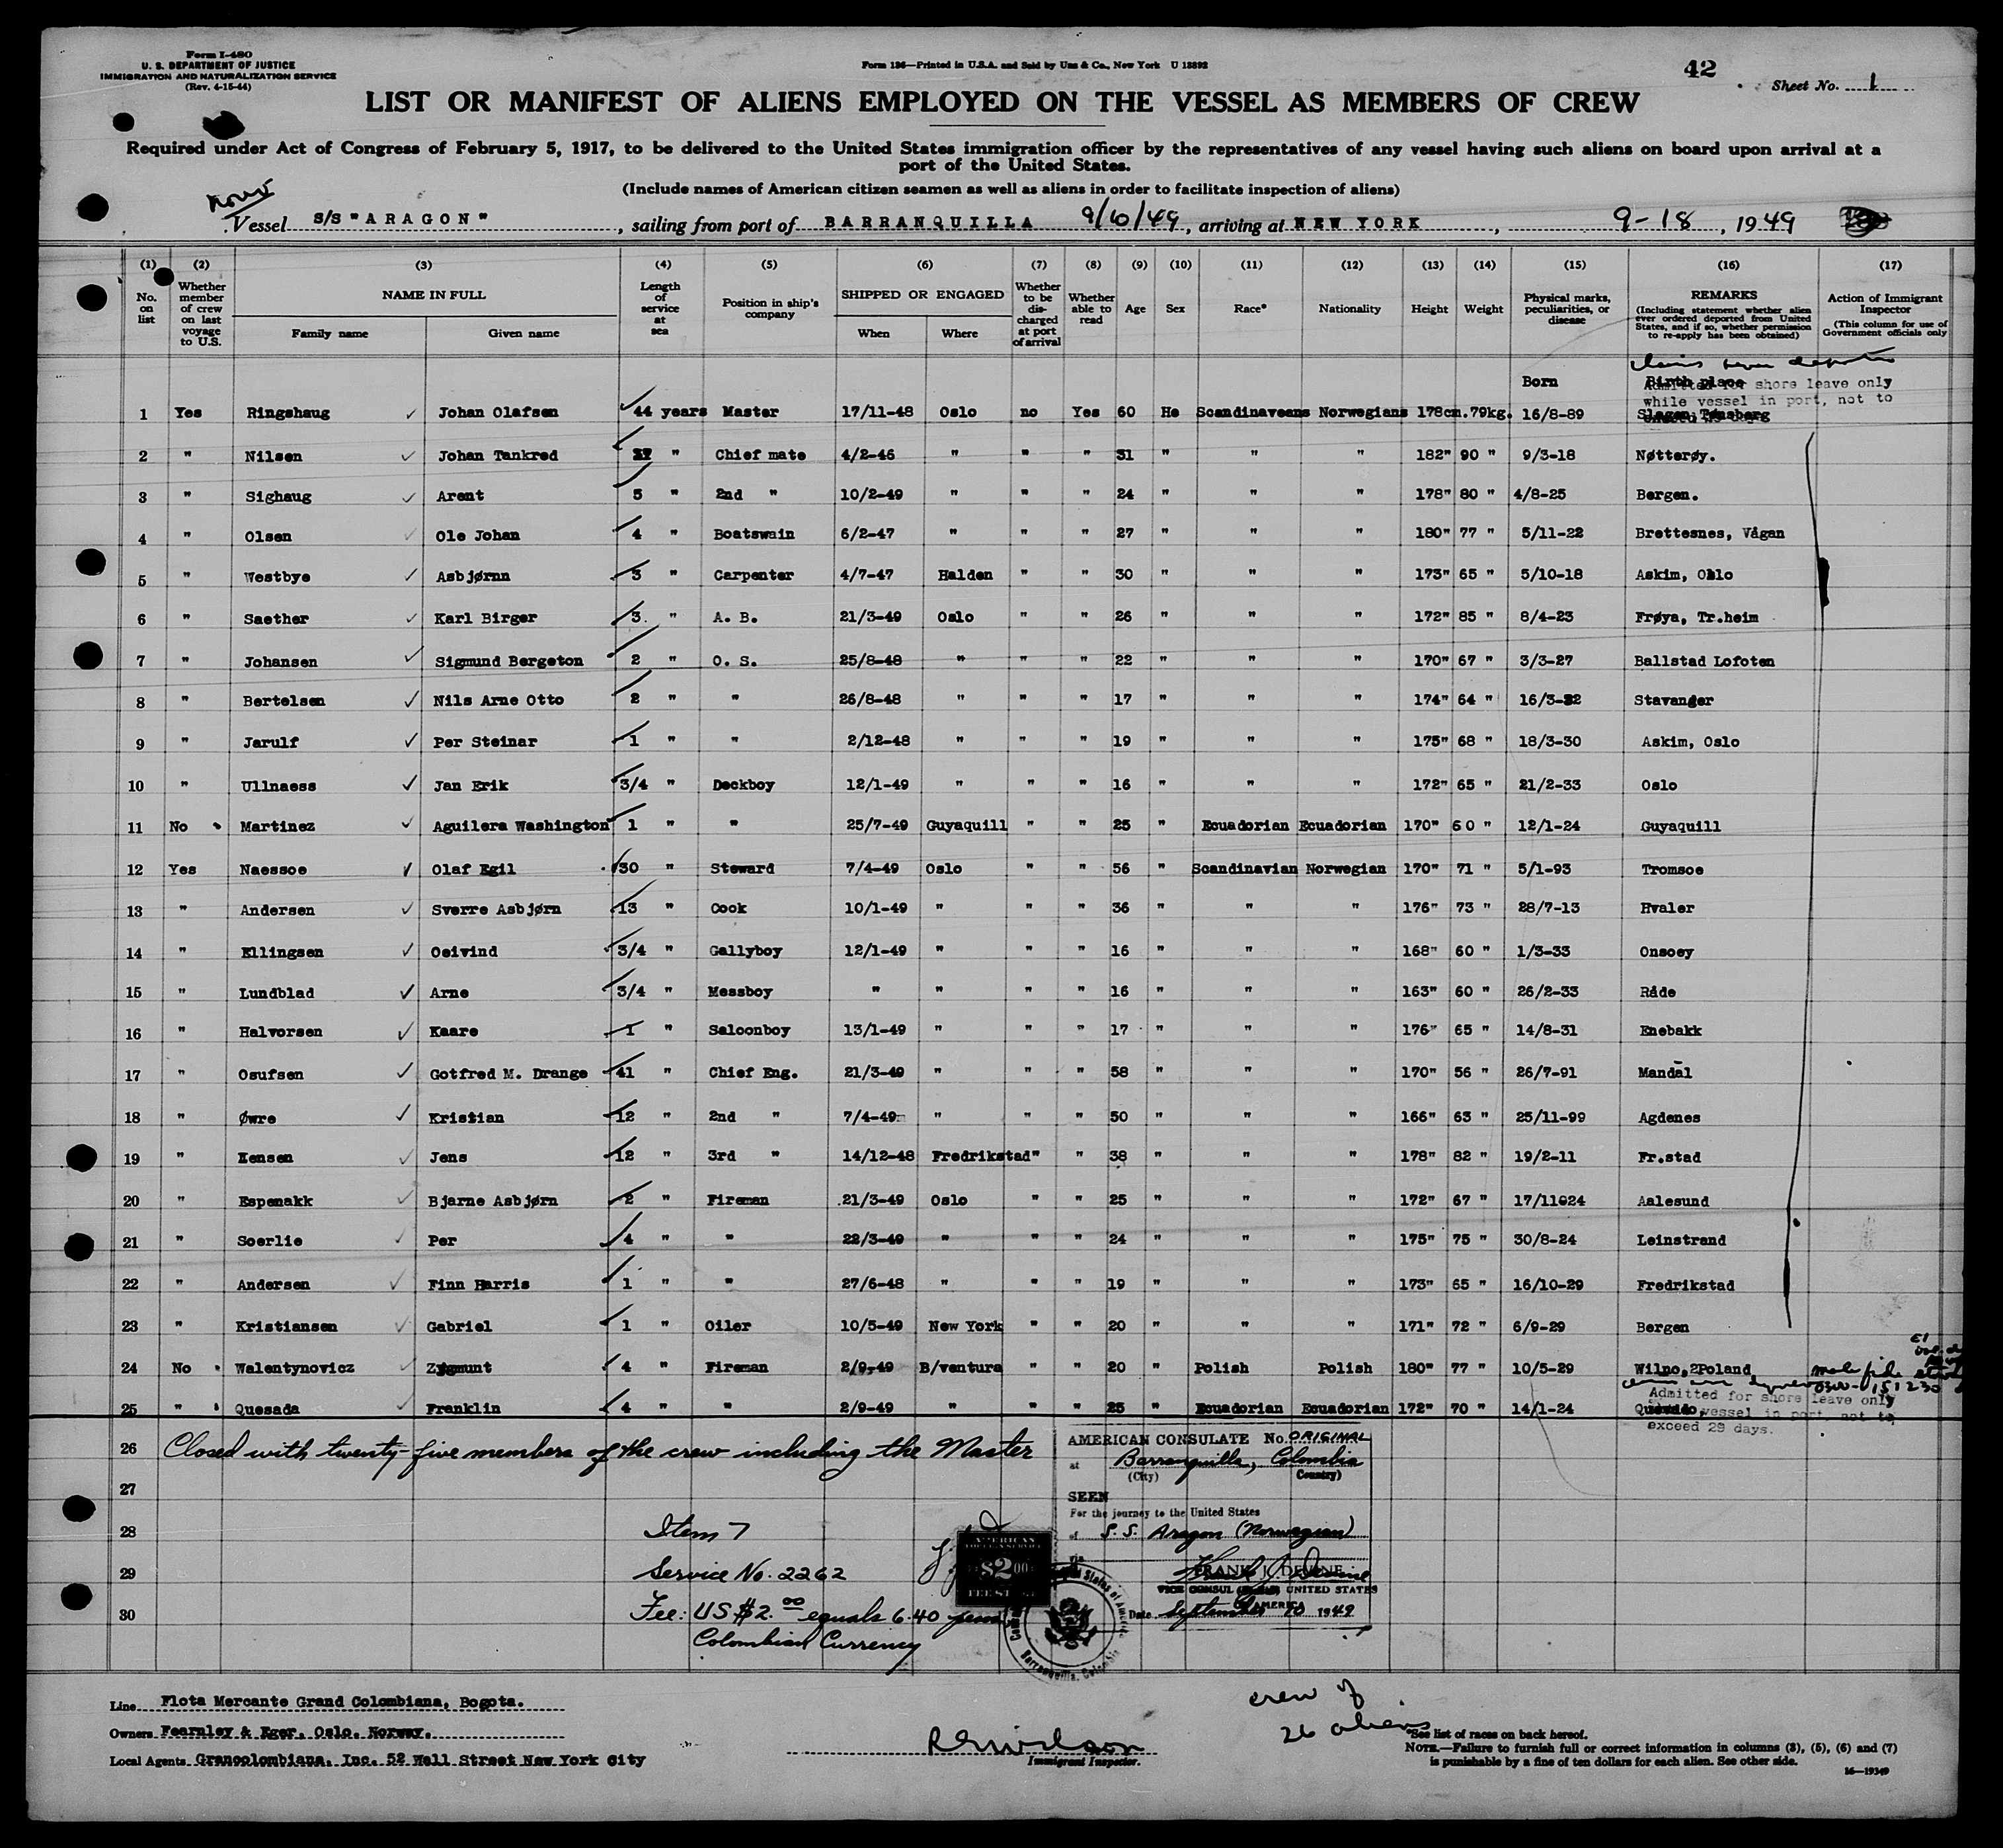 Form I-480
U. S. DEPARTMENT OF JUSTICE
IMMIGRATION AND NATURALIZATION SERVICE
(Rev. 4-15-44)
Form 126—Printed in U.S.A. and Sold by Unz & Co., New York U 13892
42
Sheet No. 1
LIST OR MANIFEST OF ALIENS EMPLOYED ON THE VESSEL AS MEMBERS OF CREW
Required under Act of Congress of February 5, 1917, to be delivered to the United States immigration officer by the representatives of any vessel having such aliens on board upon arrival at a
port of the United States.
(Include names of American citizen seamen as well as aliens in order to facilitate inspection of aliens)
Norw
Vessel S/S "ARAGON", sailing from port of BARRANQUILLA 9/10/49, arriving at NEW YORK, 9-18, 1949
(1) (2) (3) (4) (5) (6) (7) (8) (9) (10) (11) (12) (13) (14) (15) (16) (17)
No. on list
Whether member of crew on last voyage to U.S.
NAME IN FULL
Family name
Given name
Length of service at sea
Position in ship's company
SHIPPED OR ENGAGED
When
Where
Whether to be discharged at port of arrival
Whether able to read
Age
Sex
Race*
Nationality
Height
Weight
Physical marks, peculiarities, or disease
REMARKS
(Including statement whether alien ever ordered deported from United States, and if so, whether permission to re-apply has been obtained)
Action of Immigrant Inspector
(This column for use of Government officials only
Born
Birth place
Admitted for shore leave only
while vessel in port, not to
1 Yes Ringshaug Johan Olafsen 44 years Master 17/11-48 Oslo no Yes 60 He Scandinaveans Norwegians 178cm. 79kg. 16/8-89 Slagen Tønsberg
2 " Nilsen Johan Tankred " Chief mate 4/2-46 " " " 31 " " " 182" 90 " 9/3-18 Nøtterøy.
3 " Sighaug Arent 5 " 2nd " 10/2-49 " " " 24 " " " 178" 80 " 4/8-25 Bergen.
4 " Olsen Ole Johan 4 " Boatswain 6/2-47 " " " 27 " " " 180" 77 " 5/11-22 Brettesnes, Vågan
5 " Westbye Asbjørnn 3 " Carpenter 4/7-47 Halden " " 30 " " " 173" 65 " 5/10-18 Askim, Oslo
6 " Saether Karl Birger 3. " A. B. 21/3-49 Oslo " " 26 " " " 172" 85 " 8/4-23 Frøya, Tr.heim
7 " Johansen Sigmund Bergeton 2 " O. S. 25/8-48 " " " 22 " " " 170" 67 " 3/3-27 Ballstad Lofoten
8 " Bertelsen Nils Arne Otto 2 " " 26/8-48 " " " 17 " " " 174" 64 " 16/3-32 Stavanger
9 " Jarulf Per Steinar 1 " " 2/12-48 " " " 19 " " " 175" 68 " 18/3-30 Askim, Oslo
10 " Ullnaess Jan Erik 3/4 " Deckboy 12/1-49 " " " 16 " " " 172" 65 " 21/2-33 Oslo
11 No Martinez Aguilera Washington 1 " " 25/7-49 Guyaquill " " 25 " Ecuadorian Ecuadorian 170" 60 " 12/1-24 Guyaquill
12 Yes Naessoe Olaf Egil 30 " Steward 7/4-49 Oslo " " 56 " Scandinavian Norwegian 170" 71 " 5/1-93 Tromsoe
13 " Andersen Sverre Asbjørn 13 " Cook 10/1-49 " " " 36 " " " 176" 73 " 28/7-13 Hvaler
14 " Ellingsen Oeivind 3/4 " Gallyboy 12/1-49 " " " 16 " " " 168" 60 " 1/3-33 Onsoey
15 " Lundblad Arne 3/4 " Messboy " " " " 16 " " " 163" 60 " 26/2-33 Råde
16 " Halvorsen Kaare 1 " Saloonboy 13/1-49 " " " 17 " " " 176" 65 " 14/8-31 Enebakk
17 " Osufsen Gotfred M. Drange 41 " Chief Eng. 21/3-49 " " " 58 " " " 170" 56 " 26/7-91 Mandal
18 " Øwre Kristian 12 " 2nd " 7/4-49 " " " 50 " " " 166" 63 " 25/11-99 Agdenes
19 " Hensen Jens 12 " 3rd " 14/12-48 Fredrikstad " " 38 " " " 178" 82 " 19/2-11 Fr.stad
20 " Espenakk Bjarne Asbjørn 2 " Fireman 21/3-49 Oslo " " 25 " " " 172" 67 " 17/11024 Aalesund
21 " Soerlie Per 4 " " 22/3-49 " " " 24 " " " 175" 75 " 30/8-24 Leinstrand
22 " Andersen Finn Harris 1 " " 27/6-48 " " " 19 " " " 173" 65 " 16/10-29 Fredrikstad
23 " Kristiansen Gabriel 1 " Oiler 10/5-49 New York " " 20 " " " 171" 72 " 6/9-29 Bergen
24 No Walentynovicz Zygmunt 4 " Fireman 2/9-49 B/ventura " " 20 " Polish Polish 180" 77 " 10/5-29 Wilno, Poland
mala fide
0300-151230
25 " Quesada Franklin 4 " " 2/9-49 " " " 25 " Ecuadorian Ecuadorian 172" 70 " 14/1-24 Quevedo,
Admitted for shore leave only
vessel in port, not to
exceed 29 days.
26 Closed with twenty-five members of the crew including the Master
27
28 Item 7
29 Service No. 2262
30 Fee: US $2.00 equals 6.40 pesos
Colombian Currency
AMERICAN CONSULATE No. ORIGINAL
at Barranquilla, Colombia
(City) (Country)
SEEN
For the journey to the United States
of S.S. Aragon (Norwegian)
FRANK J. DEVINE
VICE CONSUL UNITED STATES
OF AMERICA
Date September 10 1949
AMERICAN
$2.00
FEE STAMP
Barranquilla, Colombia
Line Flota Mercante Grand Colombiana, Bogota.
Owners Fearnley & Eger, Oslo, Norway.
Local Agents Grancolombiana, Inc. 52 Wall Street New York City
Immigrant Inspector.
crew of
26 aliens
*See list of races on back hereof.
NOTE.—Failure to furnish full or correct information in columns (3), (5), (6) and (7)
is punishable by a fine of ten dollars for each alien. See other side.
16—19349